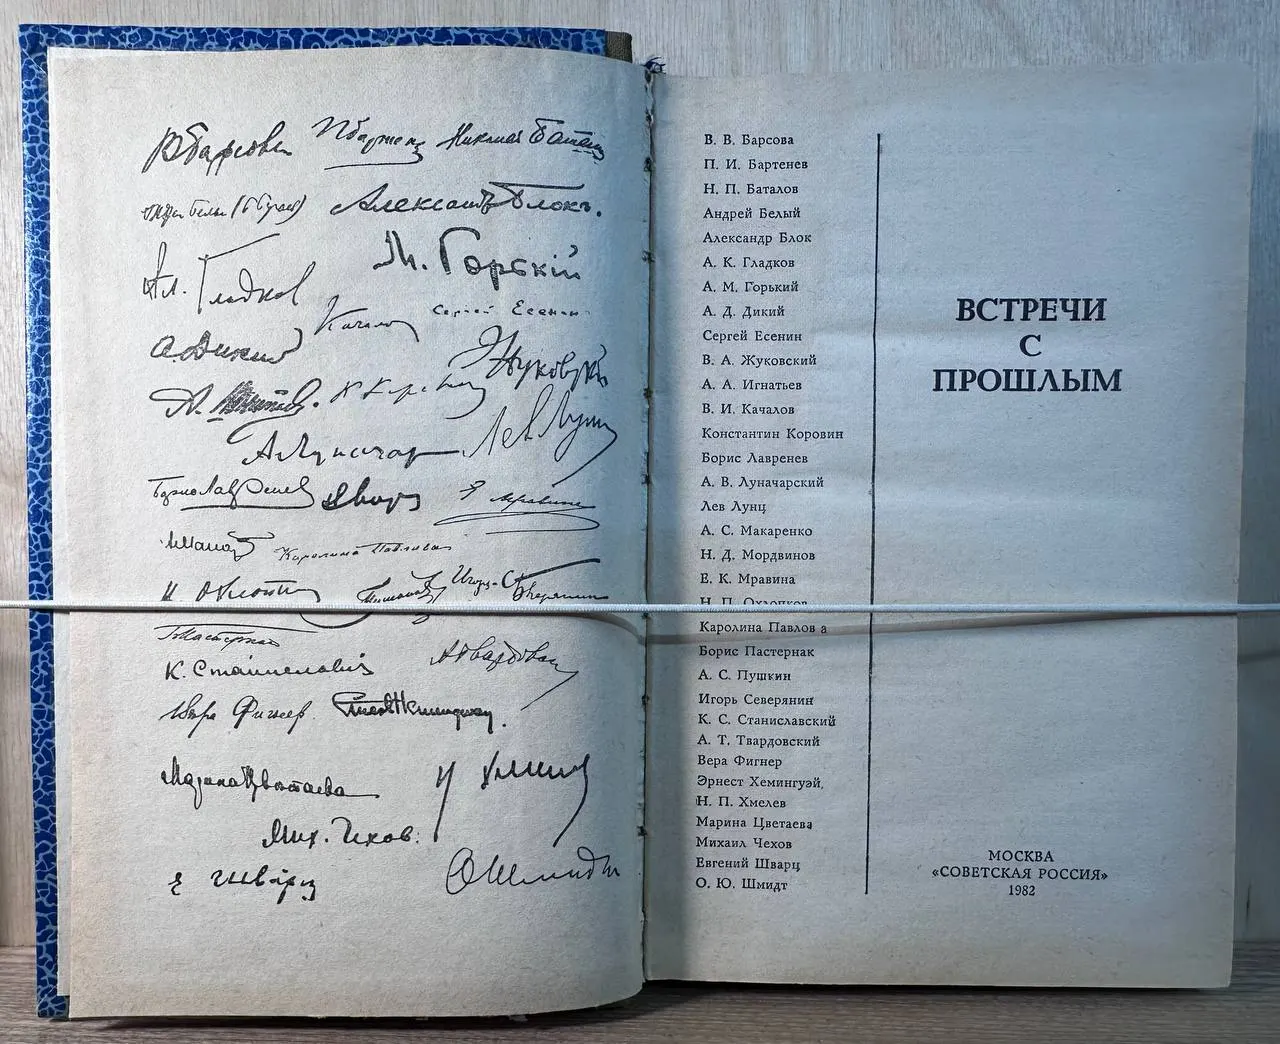 В Барсова П Бартенев Николай Баталов
Андрей Белый (Б Бугаев) Александръ Блокъ.
Ал. Гладков М. Горькій
А. Дикий Качалов Сергей Есенин
Жуковский
А. Игнатьев. К Коровин
А Луначар Лев Лунц
Борис Лавренев
Е Мравина
Каролина Павлова
Н Охлопк Игорь-Северянин
Б Пастернак
К. Станиславскій А Твардовск
Вера Фигнер. Ernest Hemingway.
Марина Цветаева Н Хмелев
Мих. Чехов.
Е Шварц ОШмидт
В. В. Барсова
П. И. Бартенев
Н. П. Баталов
Андрей Белый
Александр Блок
А. К. Гладков
А. М. Горький
А. Д. Дикий
Сергей Есенин
В. А. Жуковский
А. А. Игнатьев
В. И. Качалов
Константин Коровин
Борис Лавренев
А. В. Луначарский
Лев Лунц
А. С. Макаренко
Н. Д. Мордвинов
Е. К. Мравина
Н. П. Охлопков
Каролина Павлов а
Борис Пастернак
А. С. Пушкин
Игорь Северянин
К. С. Станиславский
А. Т. Твардовский
Вера Фигнер
Эрнест Хемингуэй,
Н. П. Хмелев
Марина Цветаева
Михаил Чехов
Евгений Шварц
О. Ю. Шмидт
ВСТРЕЧИ
С
ПРОШЛЫМ
МОСКВА
«СОВЕТСКАЯ РОССИЯ»
1982